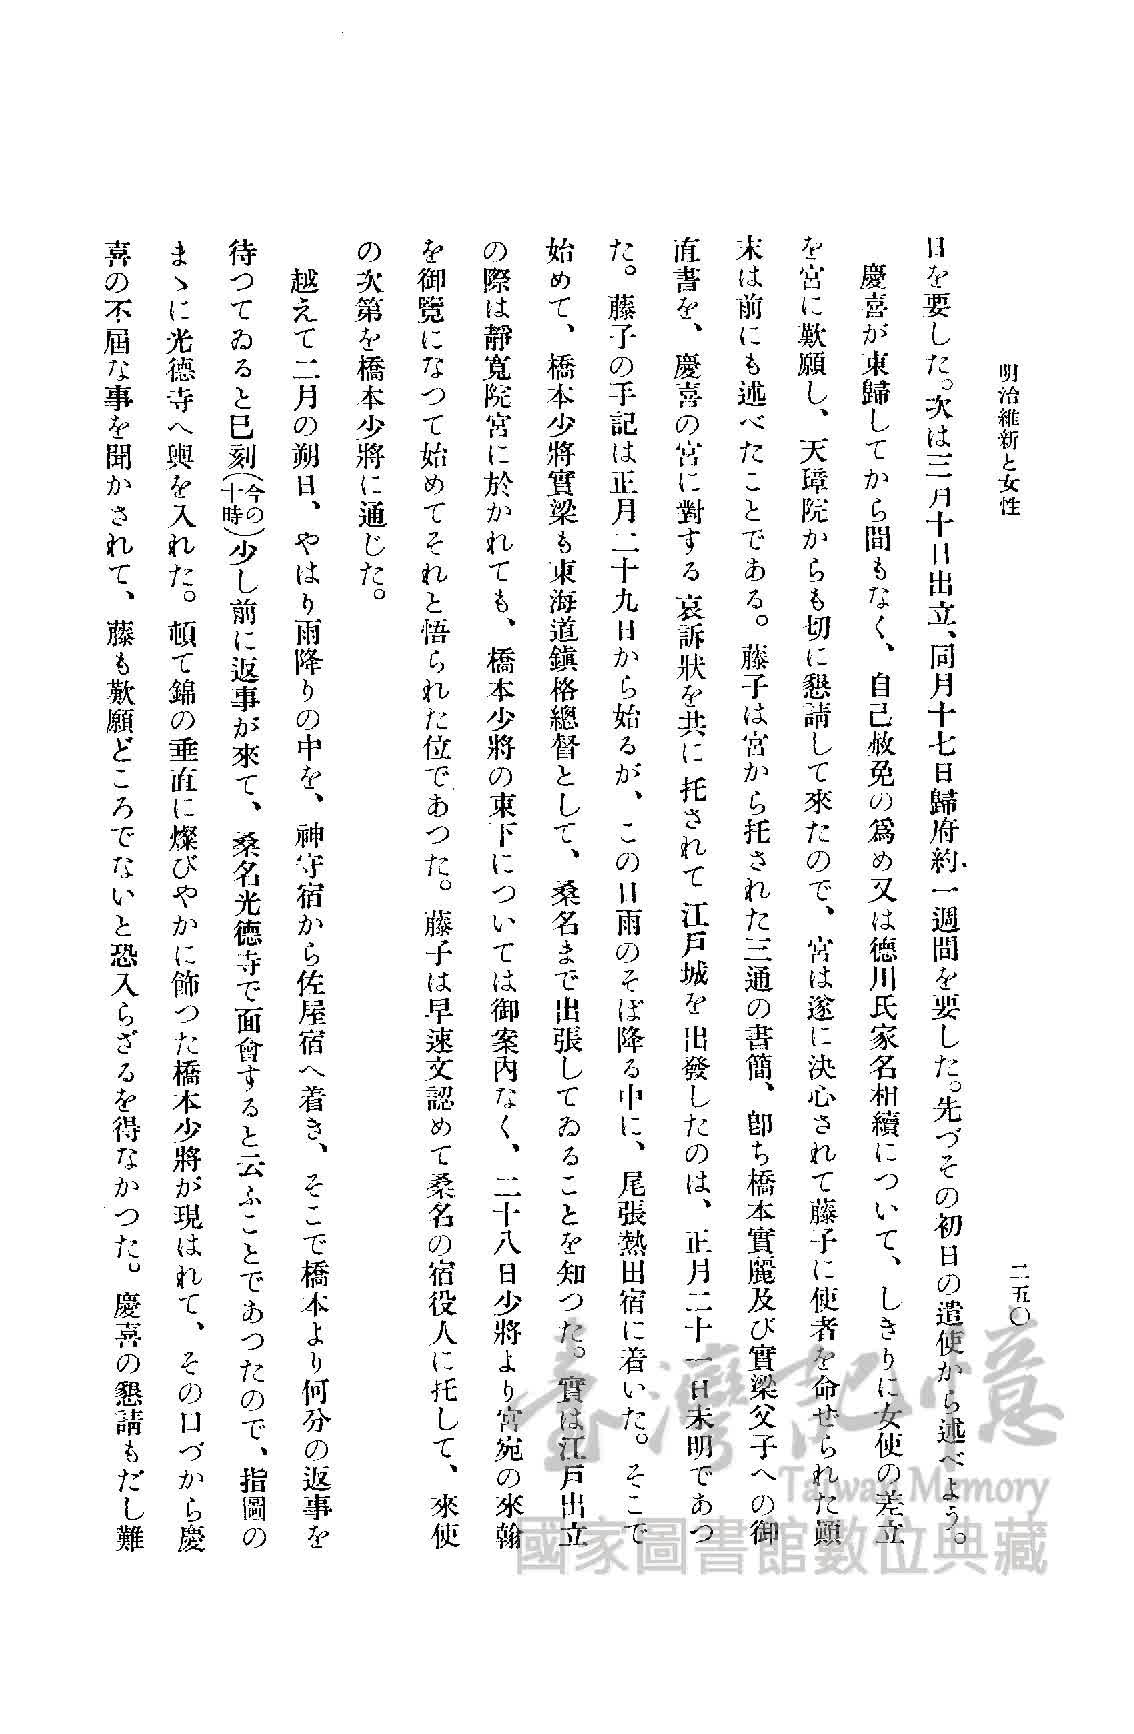 明治維新と女性
二五〇
日を要した。次は三月十日出立、同月十七日歸府約一週間を要した。先づその初日の遣使から述べよう。
慶喜が東歸してから間もなく、自己赦免の爲め又は德川氏家名相續について、しきりに女使の差立
を宮に歎願し、天璋院からも切に懇請して來たので、宮は遂に決心されて藤子に使者を命せられた顚
末は前にも述べたことである。藤子は宮から托された三通の書簡、卽ち橋本實麗及び實梁父子への御
直書を、慶喜の宮に對する哀訴狀を共に托されて江戸城を出發したのは、正月二十一日未明であつ
た。藤子の手記は正月二十九日から始るが、この日雨のそぼ降る中に、尾張熱田宿に着いた。そこで
始めて、橋本少將實梁も東海道鎭格總督として、桑名まで出張してゐることを知つた。實は江戸出立
の際は靜寬院宮に於かれても、橋本少將の東下については御案内なく、二十八日少將より宮宛の來翰
を御覽になつて始めてそれと悟られた位であつた。藤子は早速文認めて桑名の宿役人に托して、來使
の次第を橋本少將に通じた。
越えて二月の朔日、やはり雨降りの中を、神守宿から佐屋宿へ着き、そこで橋本より何分の返事を
待つてゐると巳刻(今の十時)少し前に返事が來て、桑名光德寺で面會すると云ふことであつたので、指圖の
まゝに光德寺へ輿を入れた。頓て錦の垂直に燦びやかに飾つた橋本少將が現はれて、その口づから慶
喜の不屆な事を聞かされて、藤も歎願どころでないと恐入らざるを得なかつた。慶喜の懇請もだし難
臺灣記憶
Taiwan Memory
國家圖書館數位典藏